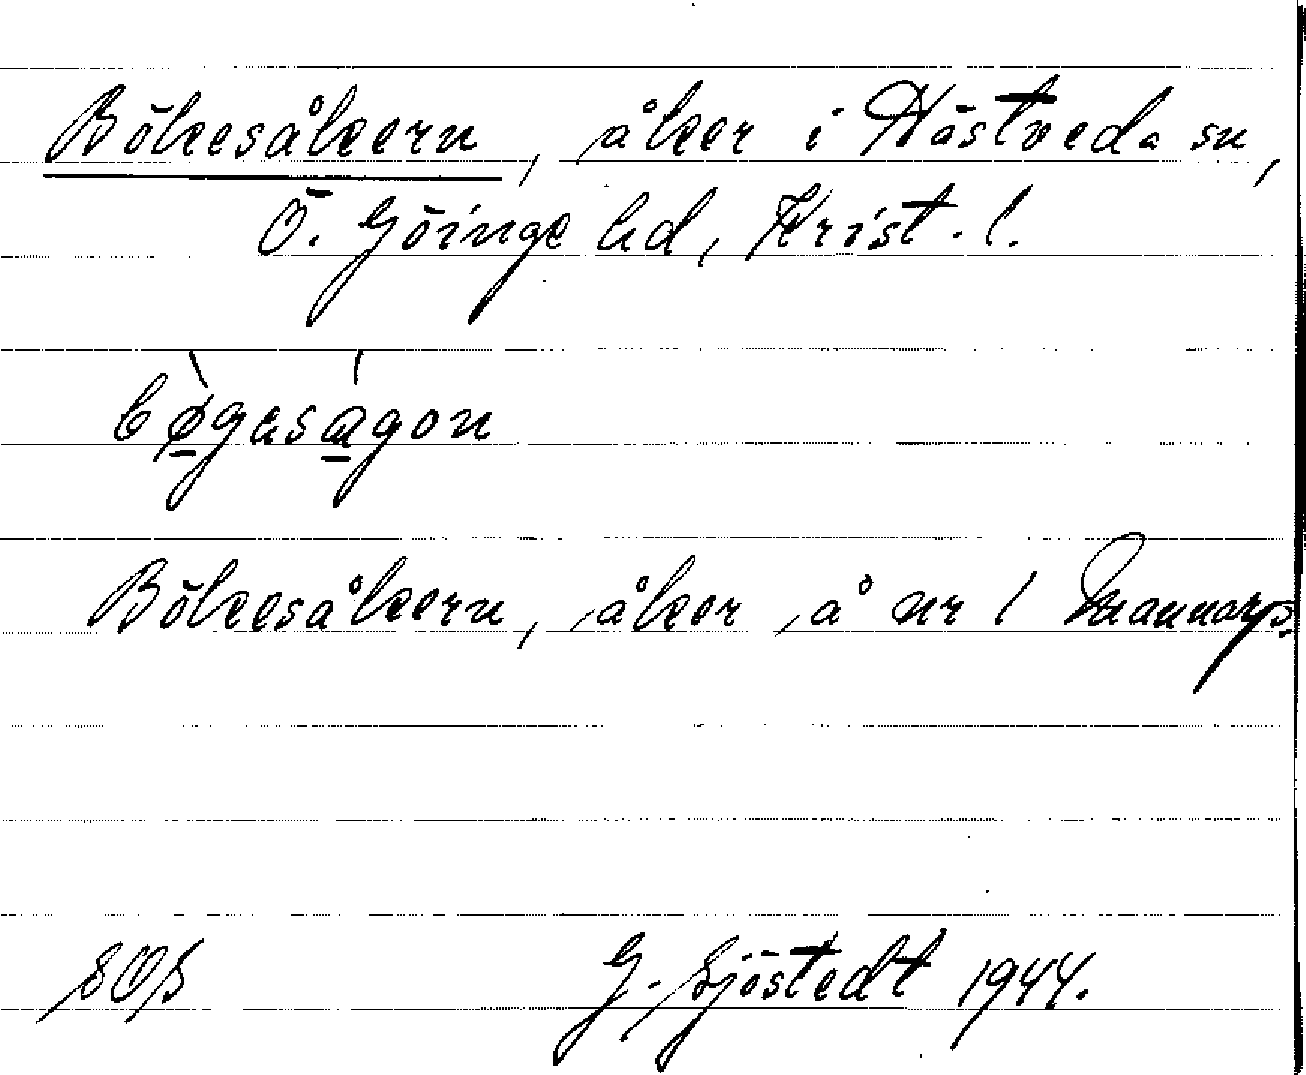 Bökesåkern, åker i Hästveda sn,
Ö. Göinge hd, Krist. l.
bø̱gasa̱gon
Bökesåkern, åker å nr 1 Mannarp.
G. Sjöstedt 1944.